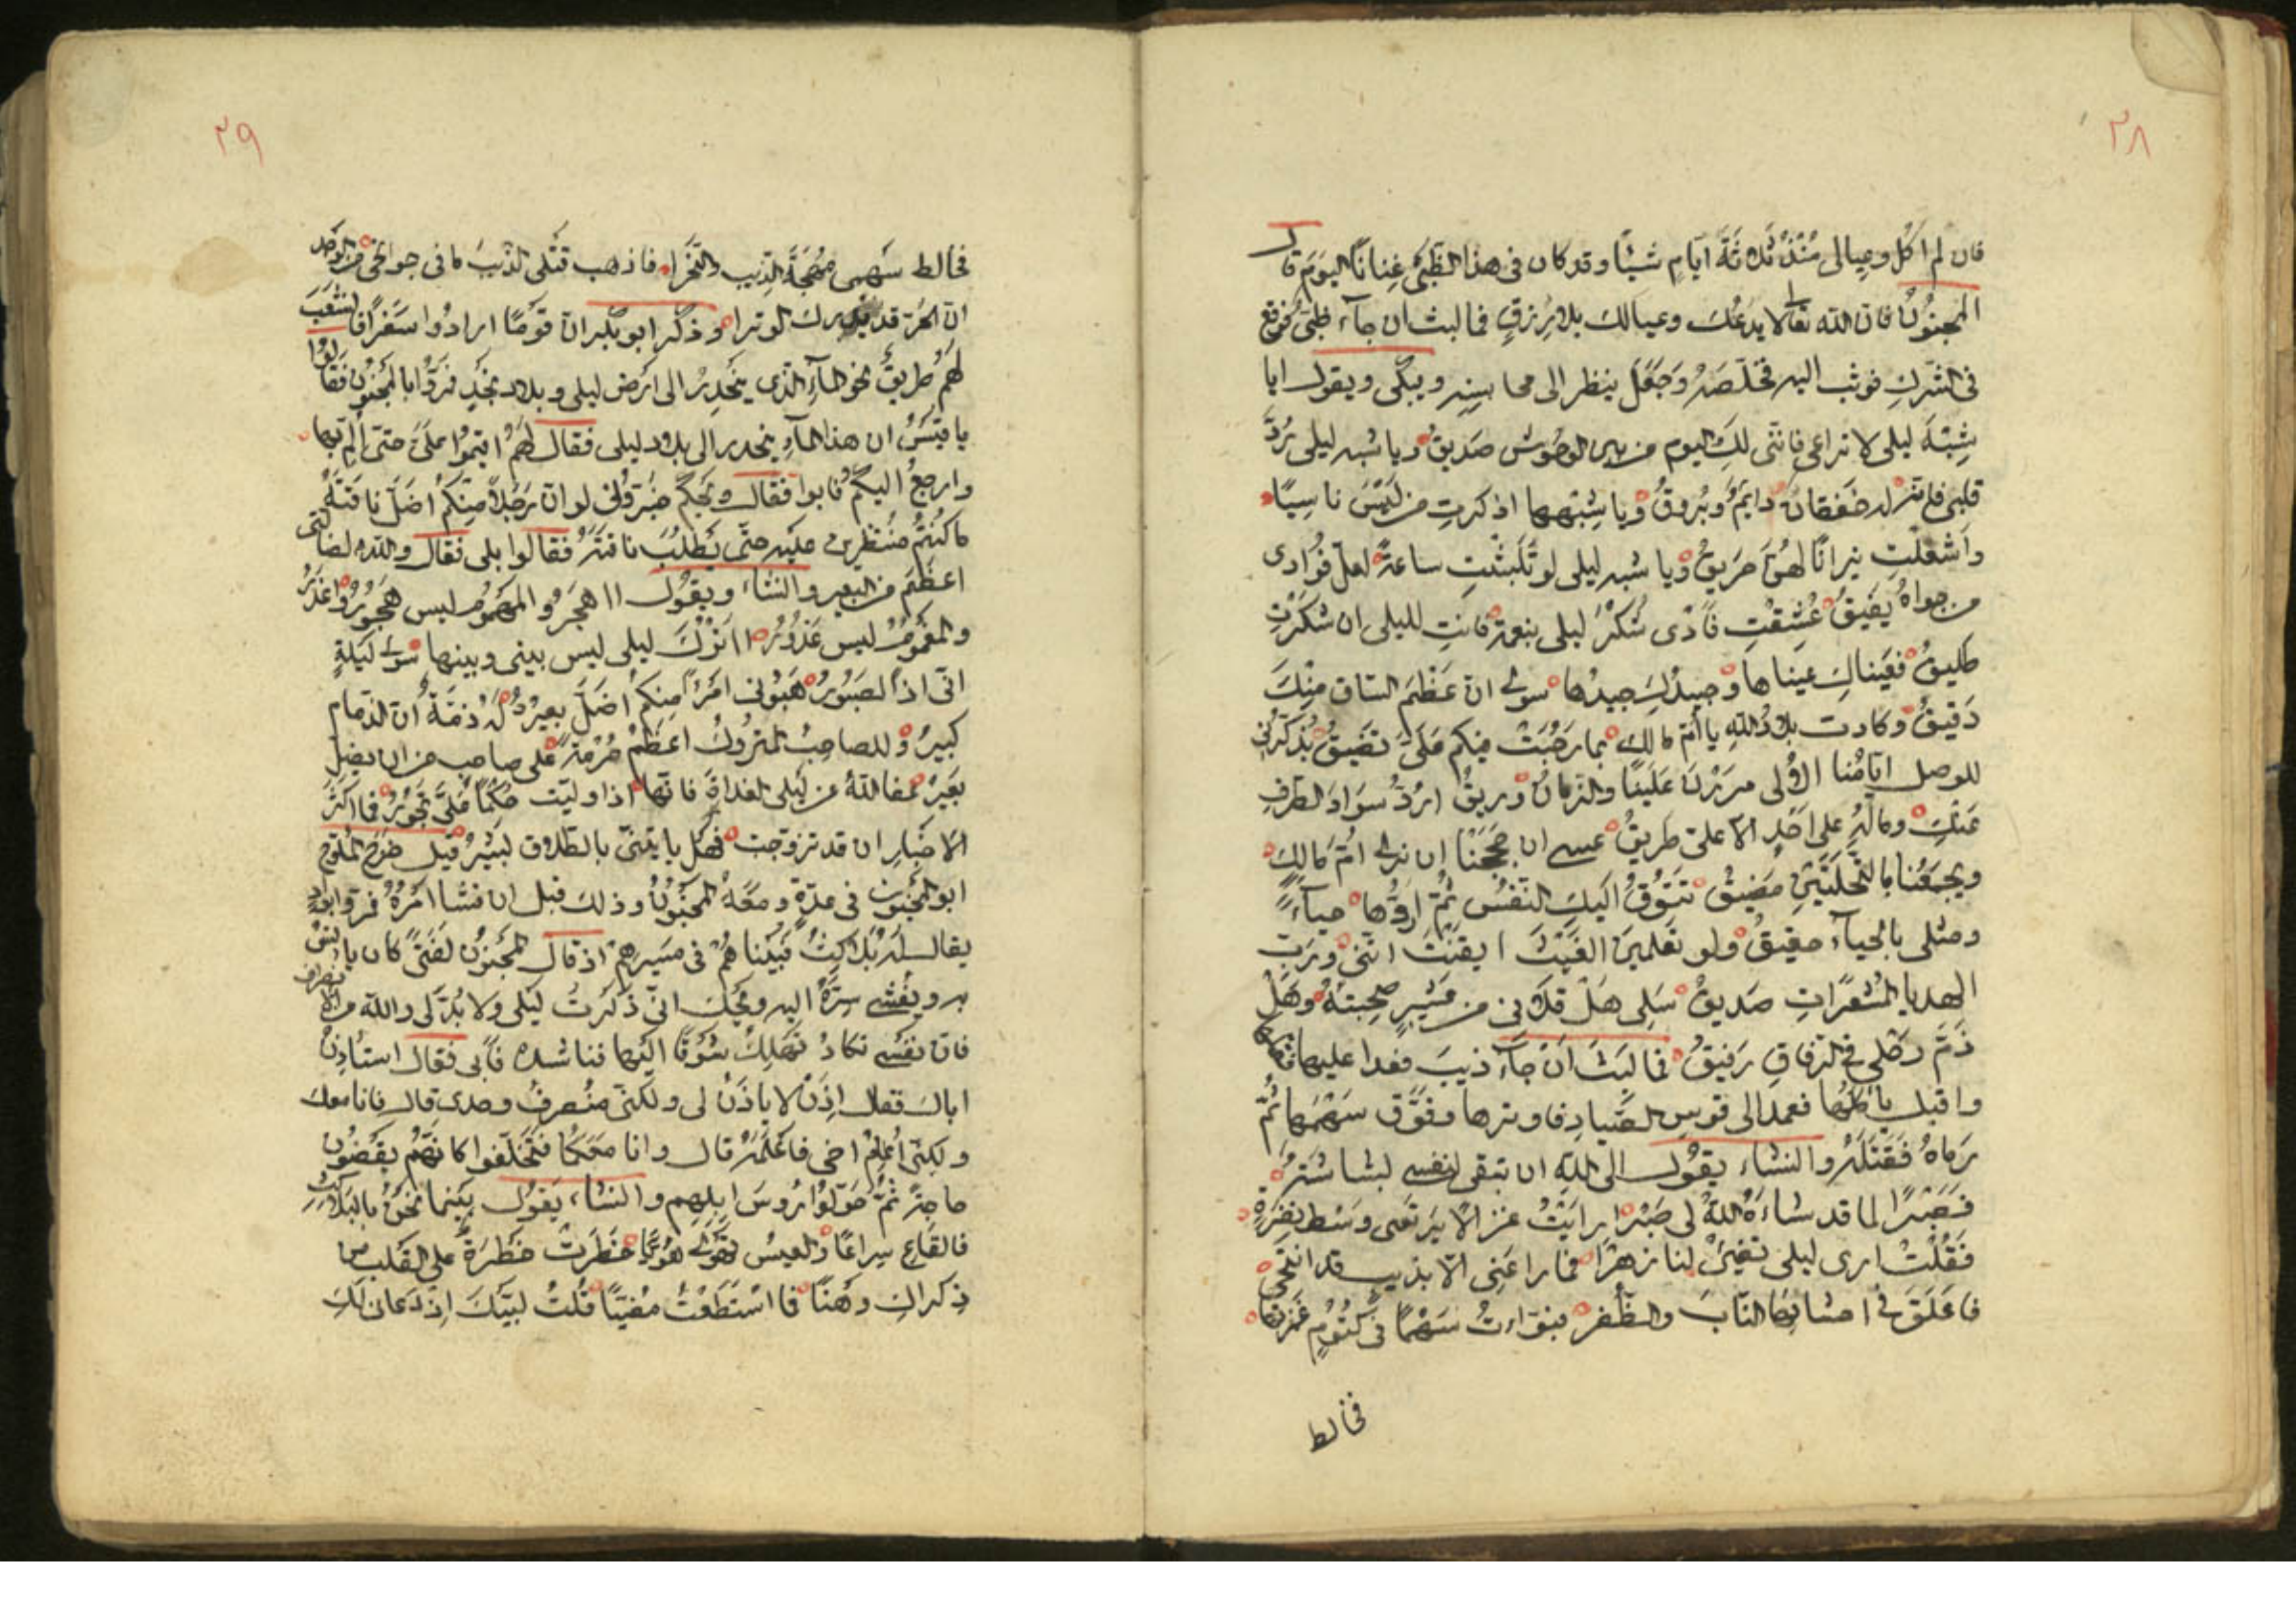 ٢٨
فان لم اكل وعيالى مُنْذُ ثلاثة ايّامٍ شيئًا وقد كان فى هذا الظّبى غِنانا اليومَ قال
المجنونُ فان الله تعالى لا يدعك وعيالك بلا رزقٍ فما لبث ان جآء ظبى فوقع
فى الشرك فوثب اليه فخلّصه وَجَعَلَ ينظر الى محاسنه ويبكى ويقول ايا
شِبْهَ ليلى لا تراعى فانّنى لكِ اليوم من بين الوحوش صَديقُ ويا شبه ليلى رُدَّ
قلبى فانّه له خفقانٌ دايمٌ وبُروقُ ويا شِبْهها اذكرتِ من ليسَ ناسِيًا
وَاشعلتِ نيرانًا لهنّ حَريقُ ويا شبه ليلى لو تَلَبَّثْتِ ساعةً لعلّ فؤادى
من جواهُ يفيقُ عُتِقْتِ فَادّى شُكرَ ليلى بنعمة فانتِ لليلى ان شكرتِ
طليقُ فعَيناكِ عيناها وجيدُكِ جيدُها سوى انّ عَظْمَ السّاق مِنْكَ
دَقيقُ وكادت بلادُ اللهِ يا أمّ مالك بما رَحُبَتْ منكم عَلَىَّ تضيقُ يُذكّرنى
للوصل ايّامُنا الأولى مررْنَ عَلَينا والزمانُ وريقُ اردُّ سَوادَ الطرفِ
عَنْكِ وماله على احَدٍ الّا على طريقُ عسى ان حججْنا ان نرى امّ مالكٍ
ويجمَعُنا بالنّخلتَيْنِ مَضيقُ تَتُوقُ اليكِ النّفْسُ ثمّ اردُّها حياءً
ومثلى بالحيآء حقيقُ ولو تعلمينَ الغَيْبَ ايقَنْتَ انّنى وربّ
الهدايا المُشعَراتِ صَديقُ سَلى هل قلانى من عَشيرٍ صحِبتهُ وهَلْ
ذَمّ رحلى فى الرّفاقِ رَفيقُ فما لبثَ ان جآء ذيبَ فعدا عليها
واقبل ياكلها فعمد الى قوس الصّياد فاوترها وفوّق سَهْمَها ثُمَّ
رماهُ فقتله وانشاء يقول الى اللهِ ان تبقى لنفسى بشاشَةٌ
فصَبْرًا لما قد شاءَهُ اللهُ لى صَبْرا رايتُ غزالًا يرتعى وَسْط
فقُلْتُ ارى ليلى تضيءُ لنا زهْرا فما راعَنِى الّا بذيبٍ قد انتحى
فاعلَقَ فى احشائها النّابَ والظّفر فبوّاءتُ سَهْمًا فى كتُومٍ غمزتها
فخالط
٢٩
فخالط سَهمى مُهجَةَ الذّيب والنّحْرا فاذهب قتلى الذّيبَ ما فى جوانحى من الوجد
انّ الحُرّ قد يدرك الوترا وذكر ابو بكر ان قومًا ارادُوا سَفرًا فانشعَبَ
لهُم طريقٌ نحو المآء الذى ينحَدِرُ الى ارض ليلى وبلاد نجدٍ فمرّوا بالمجنون فقالوا
يا قيسُ ان هذا المآء ينحدر الى بلاد ليلى فقال لهُم اقيموا علىّ حتى المّ بها
وارجعُ اليكم فابوا فقال ويحكم خبّرونى لو انّ رَجُلًا مِنكُم اضلّ ناقتَه
ما كنتُم مُنتظرين عليه حتى يطلب ناقته فقالوا بلى فقال والله لضالتى
اعظم من البعير وانشاء ويقول ااهجَرُ والمهمُومُ ليس هجورُ واُعذرُ
والمغمومُ ليس عَذورُ ااتركَ ليلى ليس بينى وبينها سوى ليلةٍ
انّى اذًا لصَبُورُ هَبُونى امرءًا منكم اضلّ بعيرُه لهُ ذمّةٌ انّ الذمام
كبيرُ وللصاحبُ المتروكُ اعظمُ حُرْمةً على صاحبٍ من ان يضلّ
بعَيرُ عفا اللهُ عن ليلى الغداةَ فانها اذا وليت حكمًا علىَّ تجورُ فما اكثرَ
الاخبار ان قد تزوّجت فهل ياتينّى بالطلاق بَشيرُ قيل خرج الملوّح
ابو المجنون فى عدّةٍ ومعهُ المجنُونُ وذلك قبل ان فشا امرُهُ فمرّ
يقال له فبينا هُم فى مَسيرهم اذ قال المجنونُ لفتىً كان يانسُ
به ويفشى سرّهُ اليه ويحك انى ذكرتُ ليلى ولا بُدّ لى والله من الانصراف
فان نفسى تكادُ تهلِكُ شوقًا اليها فناشده فابى فقال استاذِنْ
اباك فقال اذَنْ لا ياذَنُ لى ولكنى منْصرفُ وحدى قال فانا معك
ولكنّى اُعلِمُ اخى فاعلمَهُ قال وانا معَكُما فتخلّفوا كانهم يقضُون
حاجةً ثمّ حوّلوا رُوسَ ابلهم وانشاء يقول بينما نحنُ بالبلاكثِ
فالقاع سِراعًا والعيسُ تهوى هُويًّا خَطَرتْ خَطرَةٌ على القلب من
ذكراكِ وهْنًا فما اسْتَطعْتُ مُضيّا قُلتُ لبّيكَ اِذْ دَعانى لكِ